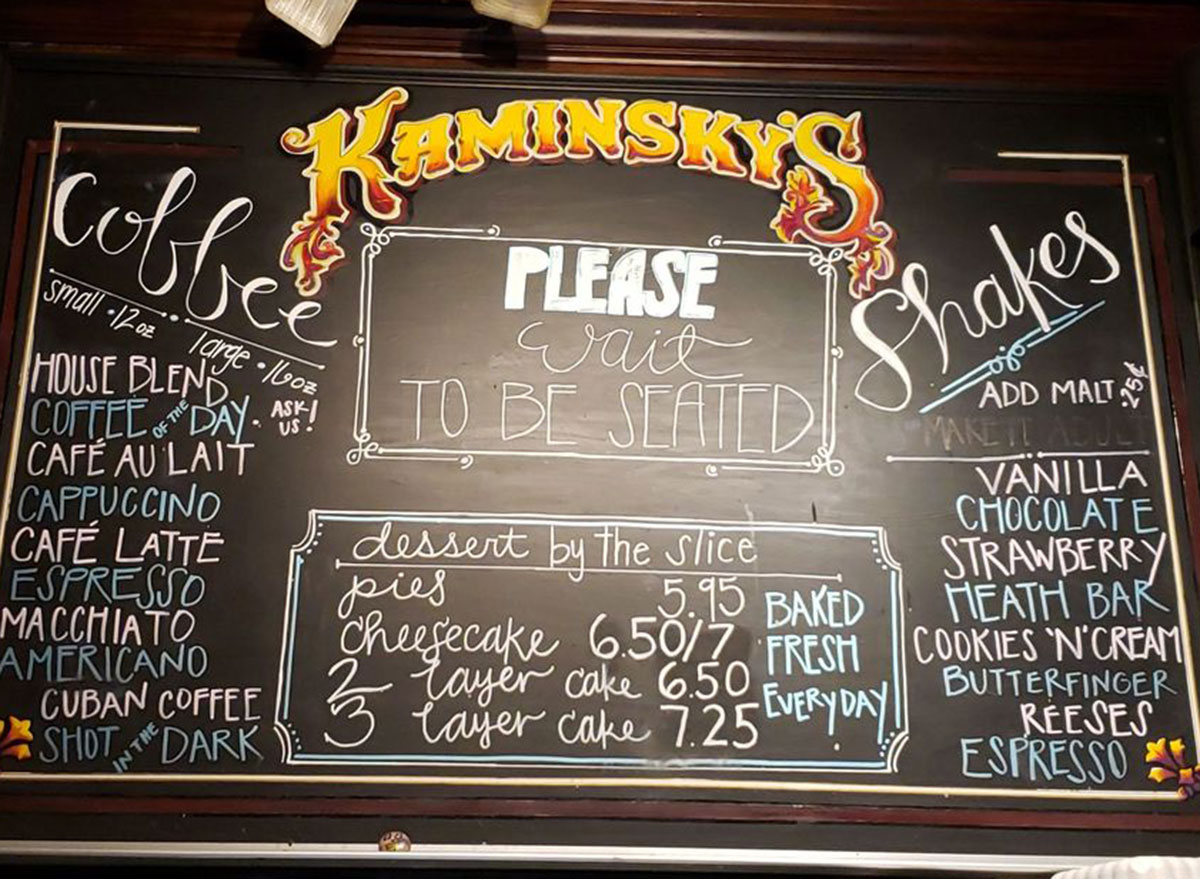 KAMINSKY'S
PLEASE
wait
TO BE SEATED
Coffee
small · 12oz
large · 16oz
HOUSE BLEND
COFFEE OF THE DAY · ASK US!
CAFÉ AU LAIT
CAPPUCCINO
CAFÉ LATTE
ESPRESSO
MACCHIATO
AMERICANO
CUBAN COFFEE
SHOT IN THE DARK
dessert by the slice
pies 5.95
cheesecake 6.50/7
2 layer cake 6.50
3 layer cake 7.25
BAKED
FRESH
EVERYDAY
Shakes
ADD MALT .25¢
MAKE IT ADULT
VANILLA
CHOCOLATE
STRAWBERRY
HEATH BAR
COOKIES 'N' CREAM
BUTTERFINGER
REESES
ESPRESSO